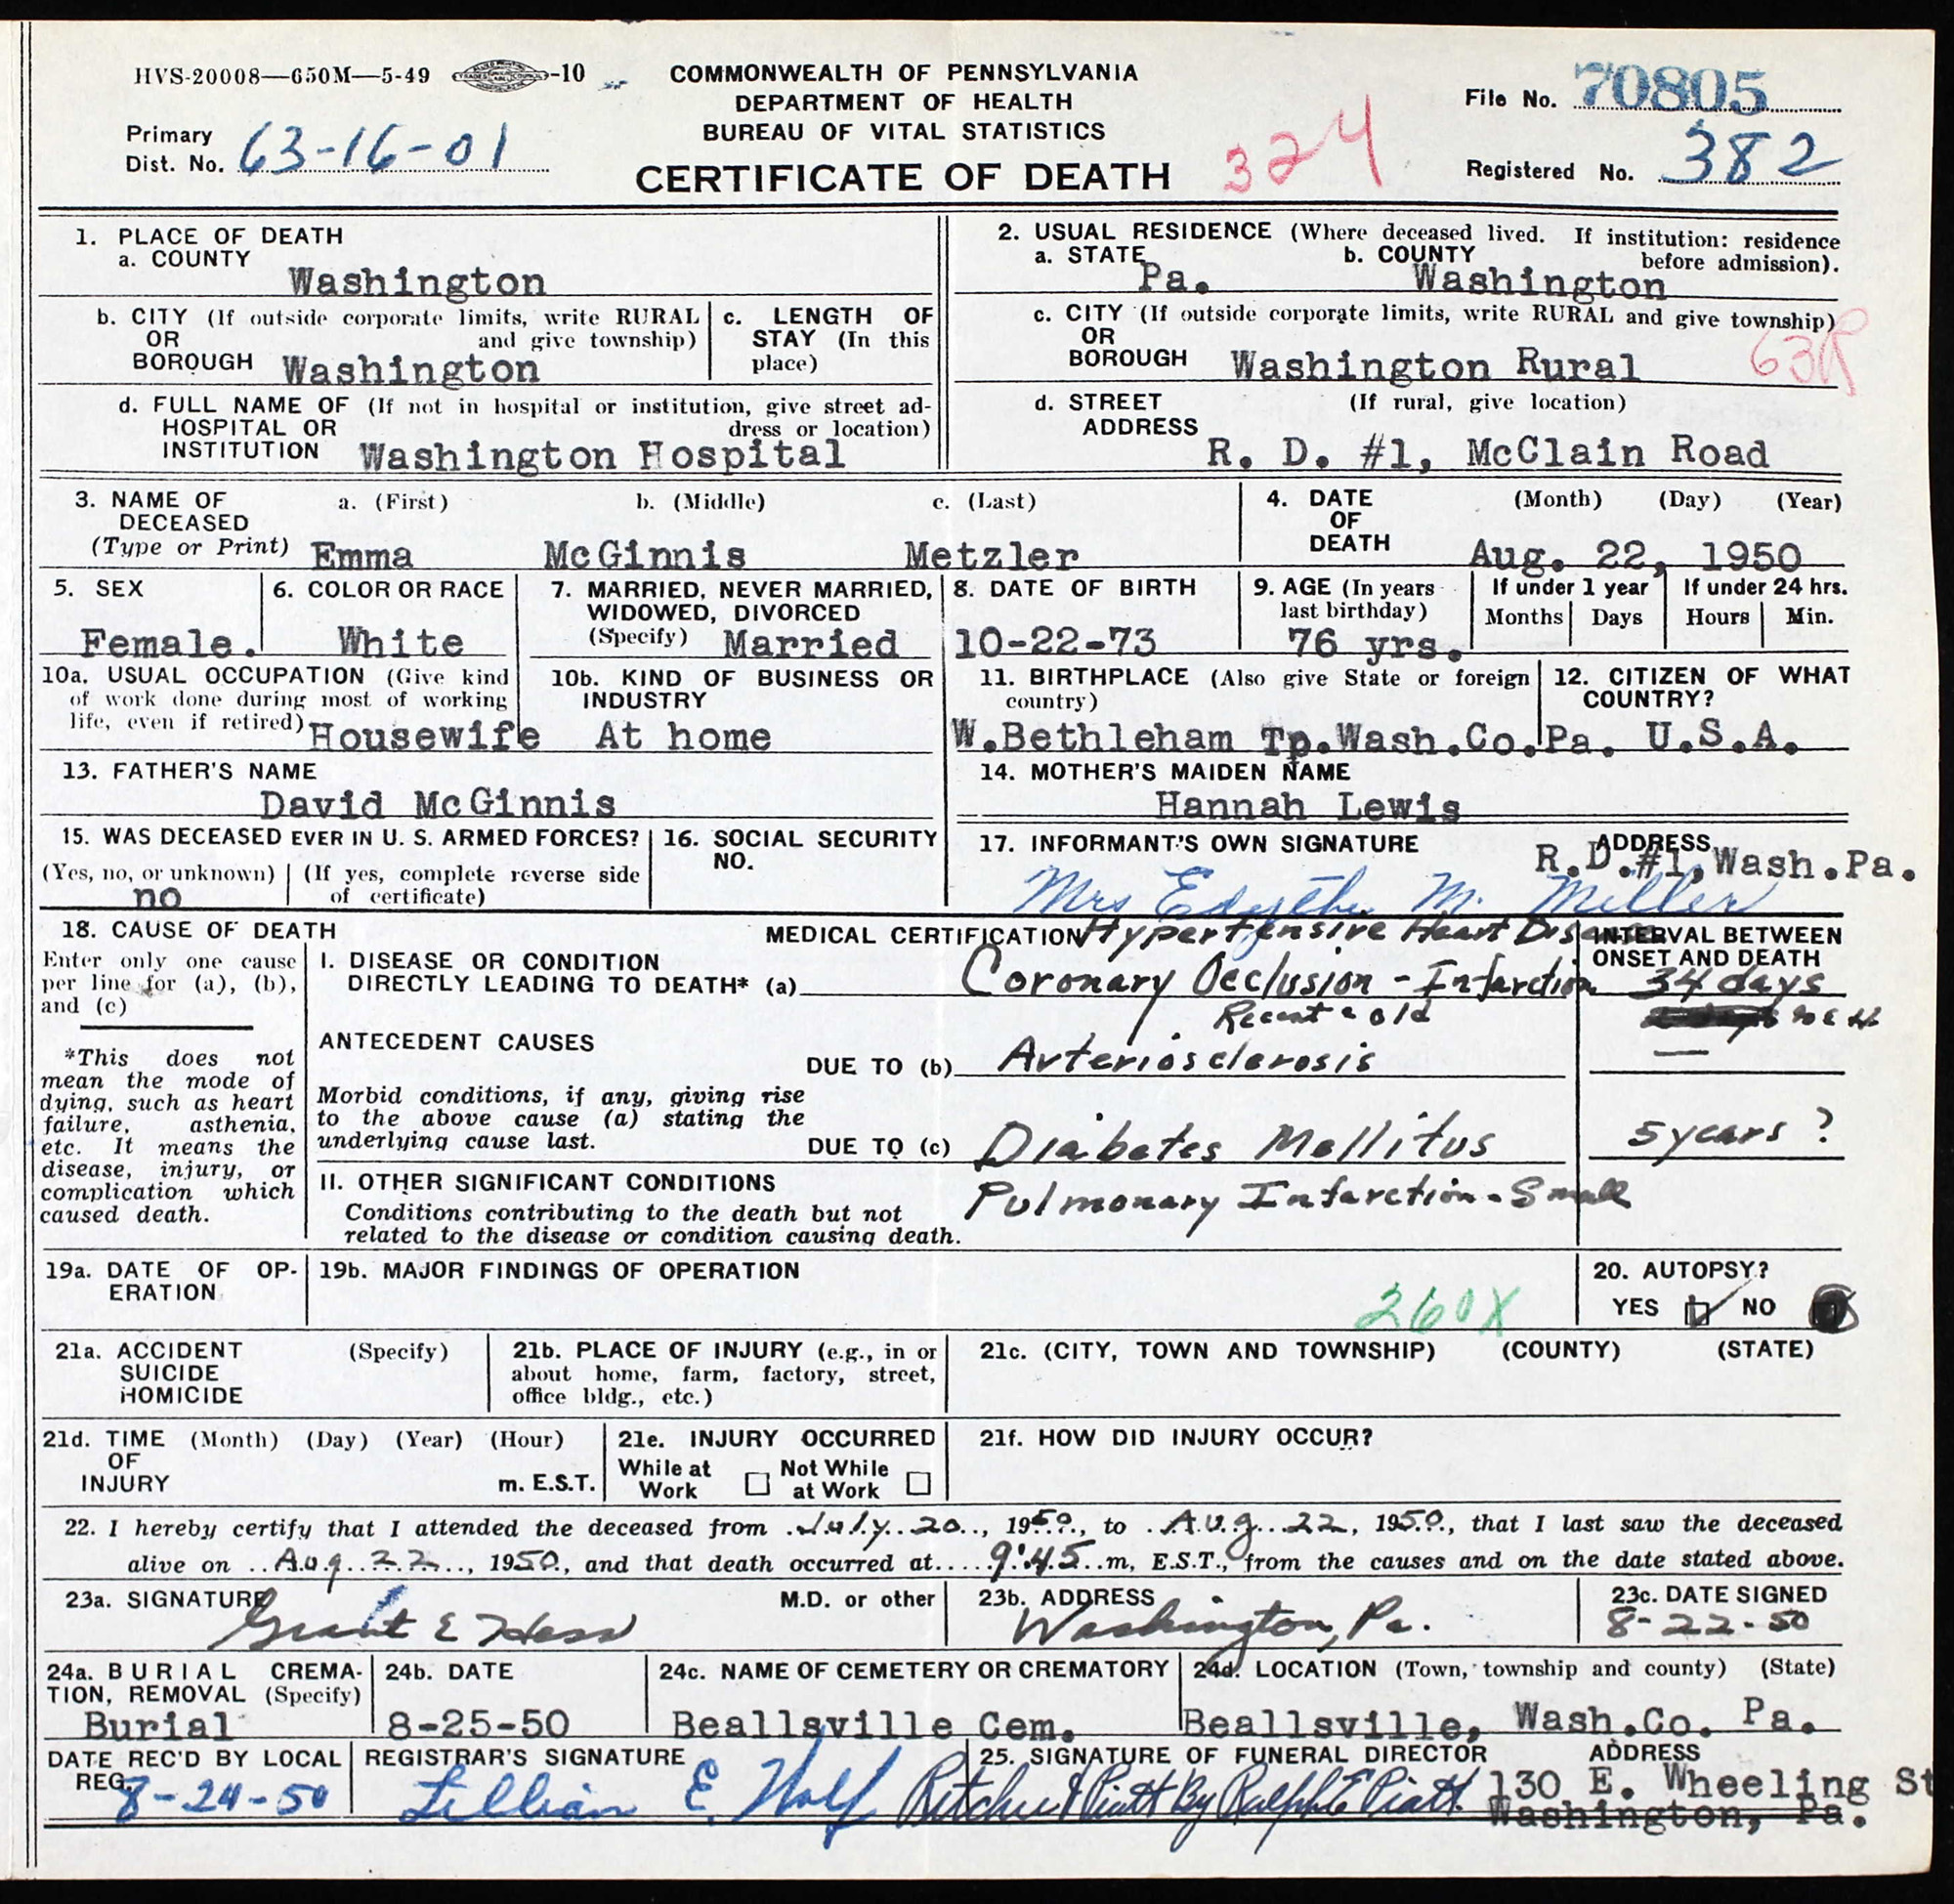 HVS-20008—650M—5-49 -10
COMMONWEALTH OF PENNSYLVANIA
DEPARTMENT OF HEALTH
BUREAU OF VITAL STATISTICS
CERTIFICATE OF DEATH
324
File No. 70805
Primary
Dist. No. 63-16-01
Registered No. 382
1. PLACE OF DEATH
a. COUNTY
Washington
b. CITY (If outside corporate limits, write RURAL
OR and give township)
BOROUGH Washington
c. LENGTH OF
STAY (In this
place)
d. FULL NAME OF (If not in hospital or institution, give street ad-
HOSPITAL OR dress or location)
INSTITUTION Washington Hospital
2. USUAL RESIDENCE (Where deceased lived. If institution: residence
before admission).
a. STATE b. COUNTY
Pa. Washington
c. CITY (If outside corporate limits, write RURAL and give township)
OR
BOROUGH Washington Rural
63R
d. STREET (If rural, give location)
ADDRESS
R. D. #1, McClain Road
3. NAME OF a. (First) b. (Middle) c. (Last)
DECEASED
(Type or Print) Emma McGinnis Metzler
4. DATE (Month) (Day) (Year)
OF
DEATH Aug. 22, 1950
5. SEX
Female.
6. COLOR OR RACE
White
7. MARRIED, NEVER MARRIED,
WIDOWED, DIVORCED
(Specify) Married
8. DATE OF BIRTH
10-22-73
9. AGE (In years
last birthday)
76 yrs.
If under 1 year
Months Days
If under 24 hrs.
Hours Min.
10a. USUAL OCCUPATION (Give kind
of work done during most of working
life, even if retired) Housewife
10b. KIND OF BUSINESS OR
INDUSTRY
At home
11. BIRTHPLACE (Also give State or foreign
country)
W.Bethleham Tp.Wash.Co.Pa.
12. CITIZEN OF WHAT
COUNTRY?
U.S.A.
13. FATHER'S NAME
David McGinnis
14. MOTHER'S MAIDEN NAME
Hannah Lewis
15. WAS DECEASED EVER IN U. S. ARMED FORCES?
(Yes, no, or unknown) (If yes, complete reverse side
no of certificate)
16. SOCIAL SECURITY
NO.
17. INFORMANT'S OWN SIGNATURE ADDRESS
R.D.#1,Wash.Pa.
Mrs Edythe M. Miller
18. CAUSE OF DEATH
Enter only one cause
per line for (a), (b),
and (c)
*This does not
mean the mode of
dying, such as heart
failure, asthenia,
etc. It means the
disease, injury, or
complication which
caused death.
MEDICAL CERTIFICATION Hypertensive Heart Disease
INTERVAL BETWEEN
ONSET AND DEATH
I. DISEASE OR CONDITION
DIRECTLY LEADING TO DEATH* (a) Coronary Occlusion - Infarction 34 days
Recent & old
ANTECEDENT CAUSES
DUE TO (b) Arteriosclerosis
Morbid conditions, if any, giving rise
to the above cause (a) stating the
underlying cause last.
DUE TO (c) Diabetes Mellitus 5 years ?
II. OTHER SIGNIFICANT CONDITIONS
Pulmonary Infarction - Small
Conditions contributing to the death but not
related to the disease or condition causing death.
19a. DATE OF OP-
ERATION
19b. MAJOR FINDINGS OF OPERATION
260X
20. AUTOPSY?
YES NO
21a. ACCIDENT (Specify)
SUICIDE
HOMICIDE
21b. PLACE OF INJURY (e.g., in or
about home, farm, factory, street,
office bldg., etc.)
21c. (CITY, TOWN AND TOWNSHIP) (COUNTY) (STATE)
21d. TIME (Month) (Day) (Year) (Hour)
OF
INJURY m. E.S.T.
21e. INJURY OCCURRED
While at Not While
Work at Work
21f. HOW DID INJURY OCCUR?
22. I hereby certify that I attended the deceased from July 20, 1950, to Aug 22, 1950, that I last saw the deceased
alive on Aug 22, 1950, and that death occurred at 9:45 m, E.S.T., from the causes and on the date stated above.
23a. SIGNATURE M.D. or other
Grant E Hess
23b. ADDRESS
Washington, Pa.
23c. DATE SIGNED
8-22-50
24a. BURIAL CREMA-
TION, REMOVAL (Specify)
Burial
24b. DATE
8-25-50
24c. NAME OF CEMETERY OR CREMATORY
Beallsville Cem.
24d. LOCATION (Town, township and county) (State)
Beallsville, Wash.Co. Pa.
DATE REC'D BY LOCAL
REG.
8-24-50
REGISTRAR'S SIGNATURE
Lillian E. Wolf
25. SIGNATURE OF FUNERAL DIRECTOR ADDRESS
Ritchie & Piatt By Ralph E Piatt 130 E. Wheeling St
Washington, Pa.